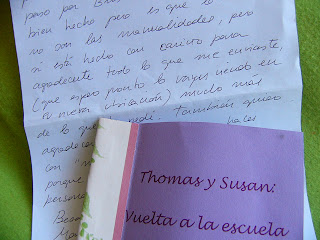 paso por
bien hecho pero es que lo
no son las manualidades, pero
si está hecho con cariño para
agradecerte todo lo que me enviaste,
(que espero pronto lo vayas viendo en
su nueva ubicación) mucho más
de lo que pedí. También quier
agradecer hacer
con "
porque
persona
Thomas y Susan:
Vuelta a la escuela